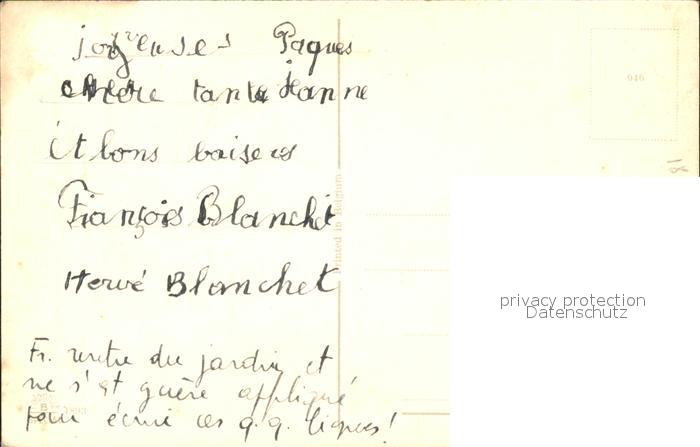 joyeuses Paques
chère tante Jeanne
Et bons baisers
François Blanchet
Hervé Blanchet
Fr. rentre du jardin et
ne s'est guère appliqué
pour écrire ces q.q. lignes!
Printed in Belgium
046
privacy protection
Datenschutz